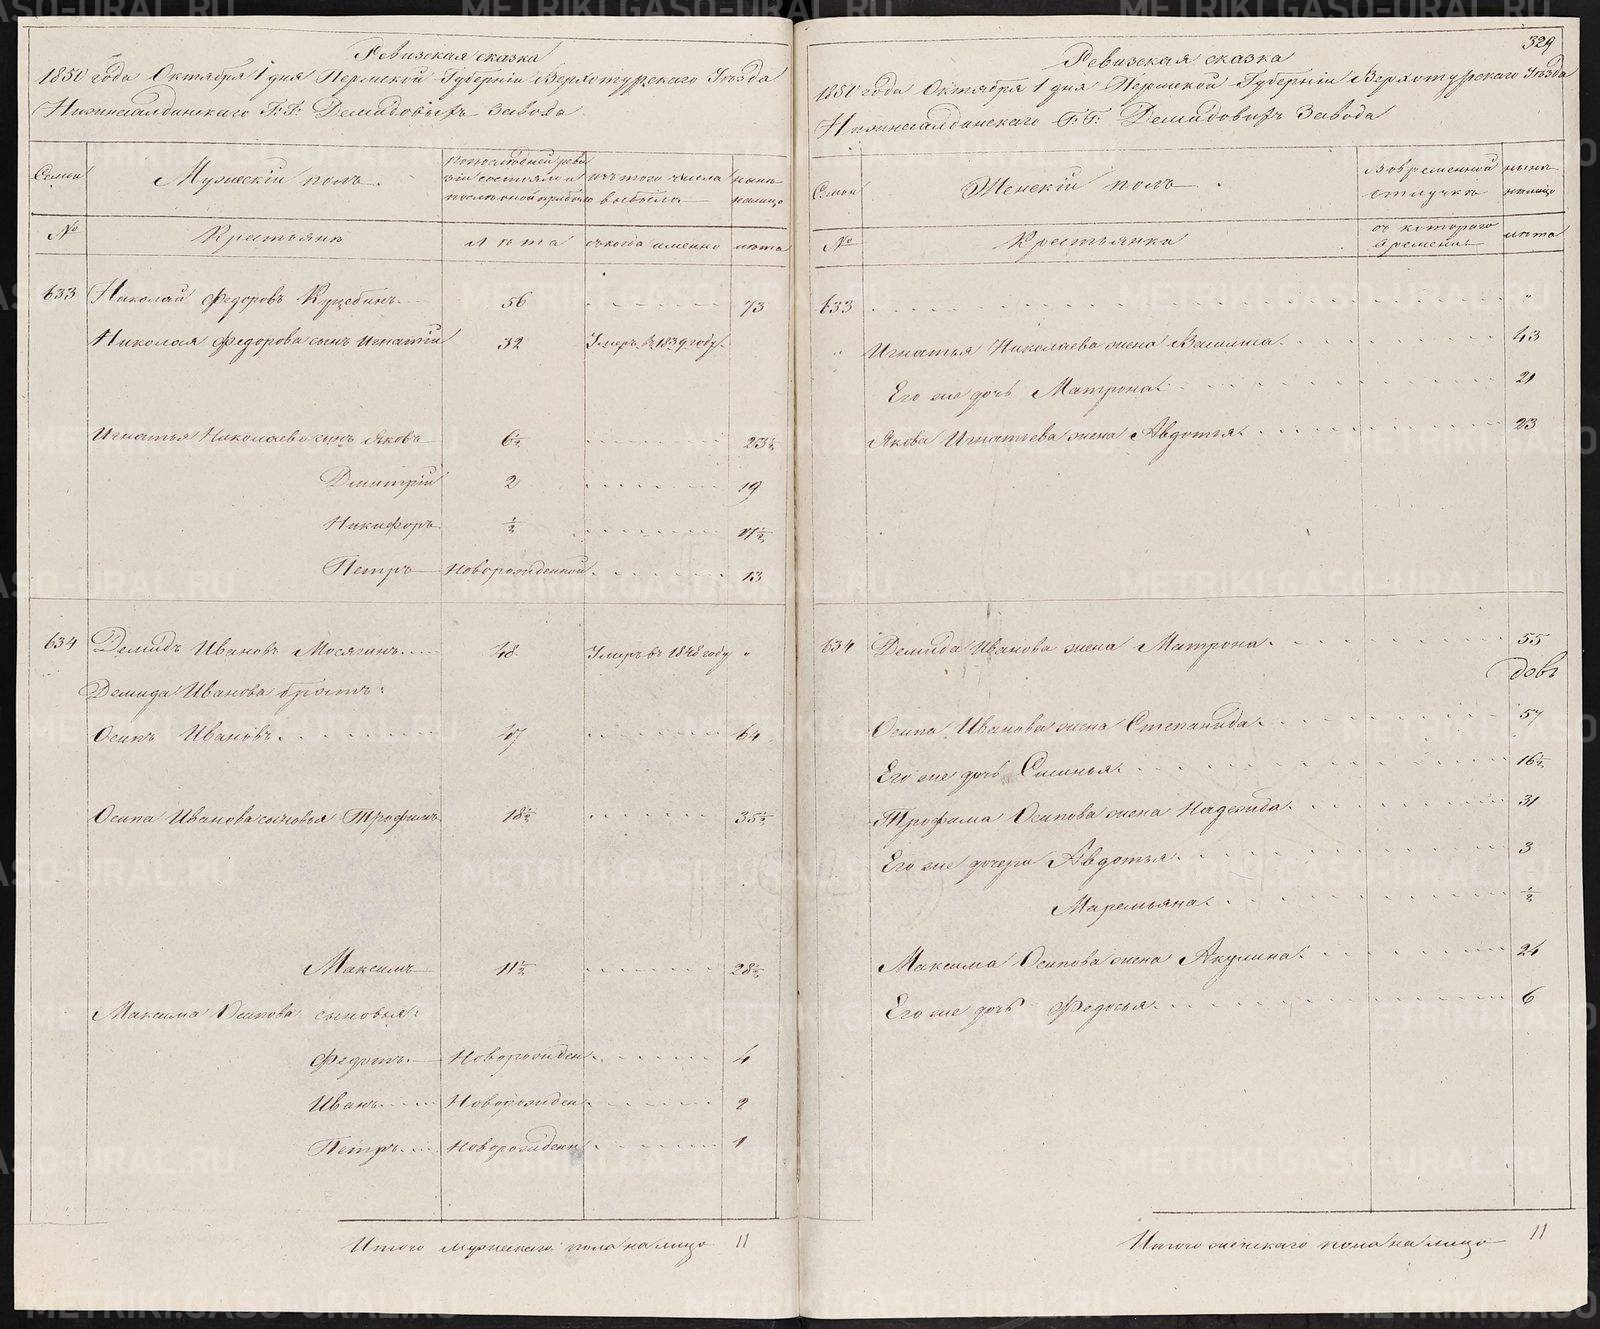 Ревизская сказка
1850 года Октября 1 дня Пермской Губернiи Верхотурскаго Уѣзда
Нижнесалдинскаго Г.Г. Демидовыхъ Завода
Семьи
Мужескiй полъ.
По последней реви
зiи состояло и
после оной прибыло
изъ того числа
выбыло
нынѣ
налицо
№
Крестьяне
лѣта
съкогда именно
лѣта
633 Николай Федоровъ 56 73
Николая Федорова сынъ Игнатiй 32 Умеръ в 1839 году.
Игнатья Николаева сынъ Яковъ 6½ 23½
Дмитрiй 2 19
Никифоръ ½ 17½
Петръ Новорожденной 13
634 Демидъ Ивановъ Мосягинъ 48 Умеръ въ 1848 году "
Демида Иванова братъ:
Осипъ Ивановъ. 47 64
Осипа Иванова сыновья Трофимъ 18½ 35½
Максимъ 11½ 28½
Максима Осипова сыновья:
Федотъ. Новорожден 4
Иванъ Новорожден 2
Петръ Новорожденн 1
Итого мужескаго пола на лицо 11
329
Ревизская сказка
1850 года Октября 1 дня Пермской Губернiи Верхотурскаго Уѣзда
Нижнесалдинскаго Г.Г. Демидовыхъ Завода
Семьи
Женскiй полъ
Во временной
отлучкѣ
нынѣ
налицо
№
Крестьянки
съ котораго
времени
лѣта
633 "
" Игнатья Николаева жена Василиса. 43
Его же дочь Матрона. 21
Якова Игнатьева жена Авдотья. 23
634 Демида Иванова жена Матрона. 55
вдовъ
Осипа Иванова жена Степанида. 57
Его же дочь 16½
Трофима Осипова жена Надежда. 31
Его же дочери Авдотья. 3
Маремьяна. ½
Максима Осипова жена Акулина. 24
Его же дочь Федосья. 6
Итого женскаго пола на лицо 11
METRIKI.GASO-URAL.RU